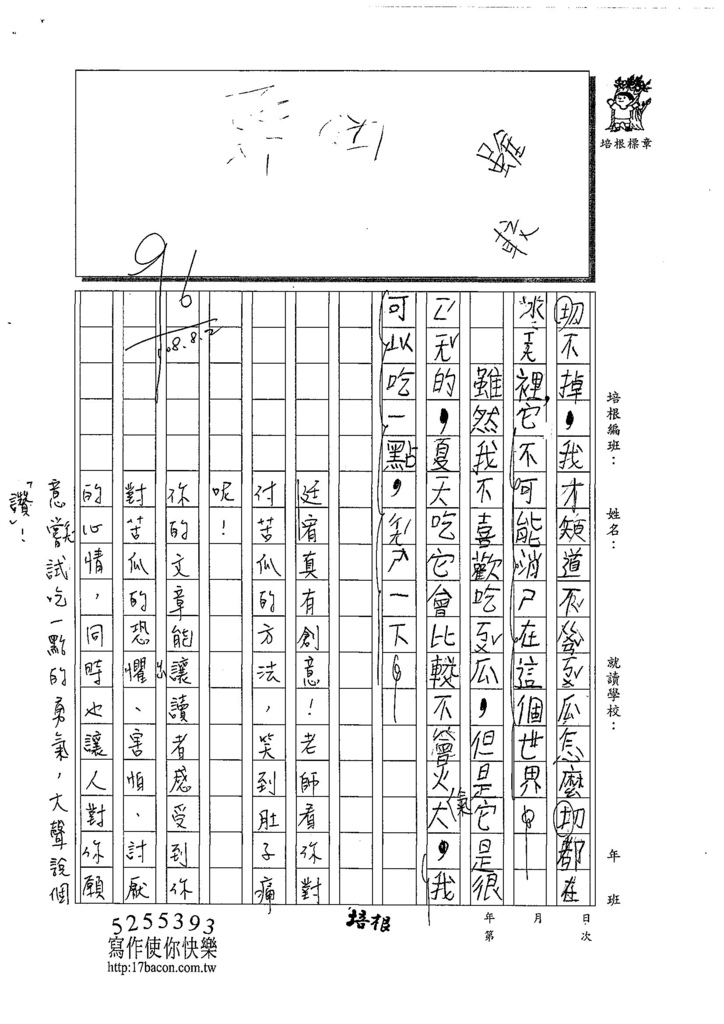 培根標章
切不掉，我才知道不管苦瓜怎麼切都在
冰　裡，它不可能消　在這個世界。
雖然我不喜歡吃苦瓜，但是它是很
　　的，夏天吃它會比較不　火大，我
氣
可以吃一點，　　一下。
廷宥真有創意！老師看你對
付苦瓜的方法，笑到肚子痛
呢！
你的文章能讓讀者感受到你
對苦瓜的恐懼、害怕、討厭
出
的心情，同時也讓人對你願
意嘗試吃一點的勇氣，大聲說個
「讚」！
96
108.8.2
培根編班：
姓名：
就讀學校：
年　班
年　月　日
第　次
培根
5255393
寫作使你快樂
http:17bacon.com.tw